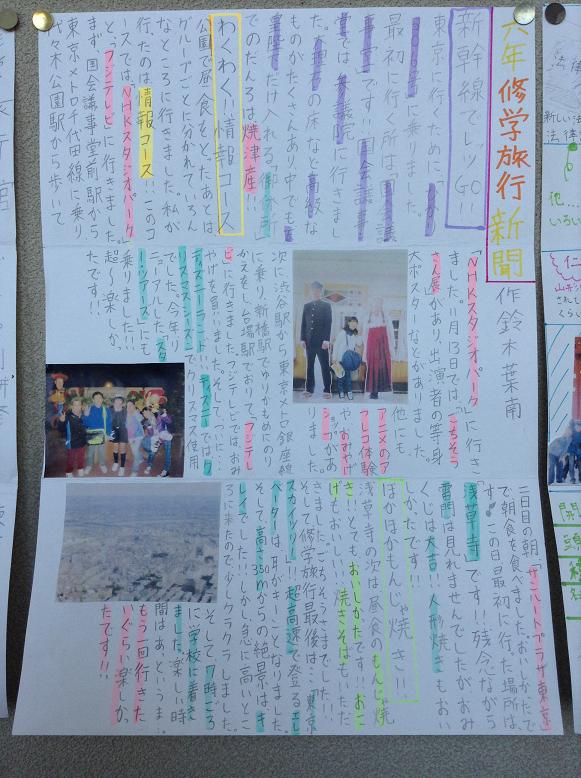 六年修学旅行新聞
作 鈴木葉南
新幹線でレッツGO!!
東京に行くために、「
」に乗りました。
最初に行く所は「国会議
事堂」です!!国会議事
堂では、参議院に行きまし
た。大理石の床など高級な
ものがたくさんあり中でも、
皇陛下だけ入れる「御休所」
でのだんろは焼津産!!
わくわく!!情報コース
公園で昼食をとったあとは
グループごとに分かれていろん
なところに行きました。私が
行ったのは情報コース!!このコ
ースでは、「NHKスタジオパーク」
と「フジテレビ」に行きました。
まず、国会議事堂前駅から
東京メトロ千代田線に乗り
代々木公園駅から歩いて
「NHKスタジオパーク」に行き
ました。11月13日では、「ごちそう
さん展があり、出演者の等身
大ポスターなどがありました。
他にも
アニメのア
フレコ体験
やおみやげ
ショップがあ
りました。
次に渋谷駅から東京メトロ銀座線
に乗り、新橋駅でゆりかもめにのり
かえをし、台場駅でおりて、「フジテレ
ビ」に行きました。フジテレビではおみ
やげを買いました。そして、ついに…
ディズニーランド!!ディズニーではク
リスマスシーズンでクリスマス使用
でした。今年リ
ニューアルした「スタ
ーツアーズ」にも
乗りました!!!
超〜楽しか
ったです!!
二日目の朝「サンハートプラザ東京」
で、朝食を食べました。おいしかたで
す♪この日最初に行った場所は、
「浅草寺」です!!残念ながら
雷門は見れませんでしたがおみ
くじは大吉!!人形焼きもおい
しかたです!!
ほかほかもんじゃ焼き!!
浅草寺の次は昼食のもんじゃ焼
き!!とてもおいしかたです!!おこ
げもおいしい!焼きそばもいただ
きました。ごちそうさまでした!!!
そして修学旅行最後は…「東京
スカイツリー」!!超高速で登るエレ
ベーターは、耳がキーンとなりました。
そして高さ350mからの絶景は、キ
レイでした!!少し、急に高いとこ
ろに来たので、クラクラしました。
そして、7時ごろ
に学校に着き
ました。楽しい時
間はあというま。
もう一回行きた
いぐらい楽しか
ったです!!